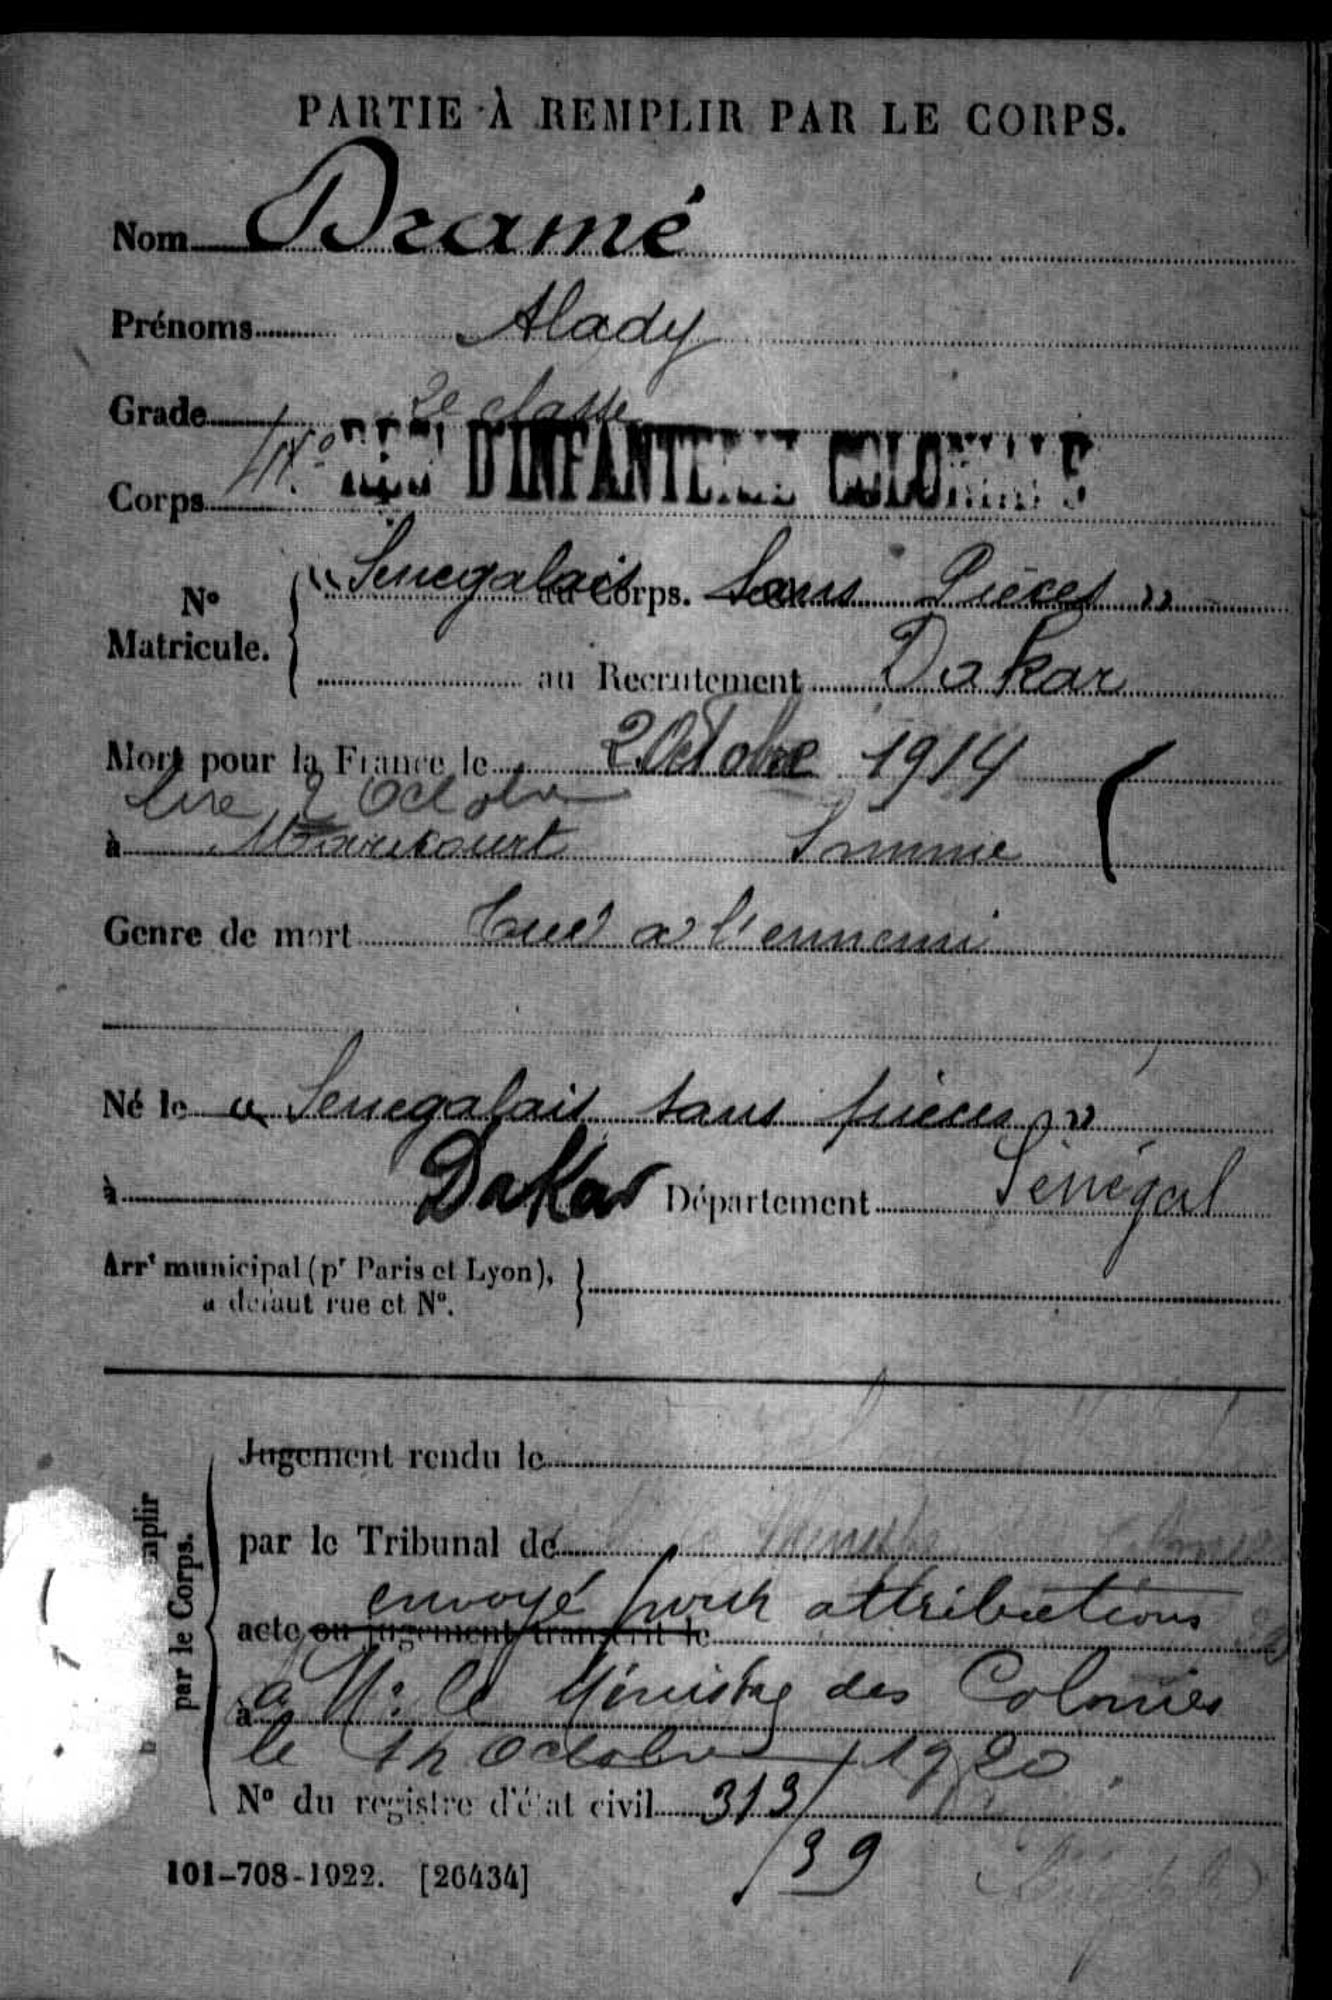 PARTIE À REMPLIR PAR LE CORPS.
Nom Dramé
Prénoms Alady
Grade 2e classe
Corps RÉGT D'INFANTERIE COLONIALE
No Matricule. "Senegalais au Corps. Sans Pièces"
au Recrutement Dakar
Mort pour la France le 2 Octobre 1914
lire 2 Octobre
à Maricourt Somme
Genre de mort Tué à l'ennemi
Né le "Senegalais sans pièces"
à Dakar Département Sénégal
Arrt municipal (pr Paris et Lyon),
à défaut rue et No.
par le Corps.
Jugement rendu le
par le Tribunal de
envoyé pour attributions
acte ou jugement transcrit le
à Mr le Ministre des Colonies
le Octobre 1920
No du registre d'état civil 313/
39
101-708-1922. [26434]